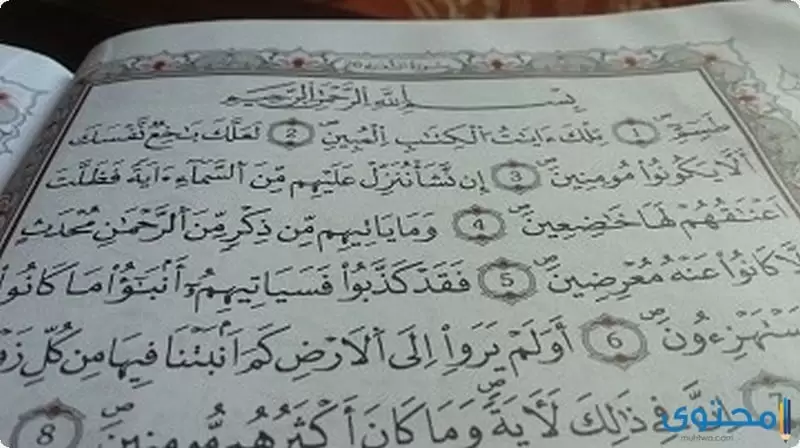 بِسْمِ اللَّهِ الرَّحْمَٰنِ الرَّحِيمِ
طَسِٓمِّٓ 1 تِلْكَ ءَايَٰتُ الْكِتَٰبِ الْمُبِينِ 2 لَعَلَّكَ بَٰخِعٌ نَّفْسَكَ
أَلَّا يَكُونُوا مُومِنِينَ 3 إِن نَّشَأْ نُنَزِّلْ عَلَيْهِم مِّنَ السَّمَاءِ ءَايَةً فَظَلَّتَ
اَعْنَٰقُهُمْ لَهَا خَٰضِعِينَ 4 وَمَا يَاتِيهِم مِّن ذِكْرٍ مِّنَ الرَّحْمَٰنِ مُحْدَثٍ
إِلَّا كَانُوا عَنْهُ مُعْرِضِينَ 5 فَقَدْ كَذَّبُوا فَسَيَاتِيهِمُ أَنۢبَٰٓؤُا مَا كَانُوا
يَسْتَهْزِءُونَ 6 أَوَلَمْ يَرَوِا اِلَى الَارْضِ كَمَ اَنۢبَتْنَا فِيهَا مِن كُلِّ
7 إِنَّ فِي ذَٰلِكَ لَأٓيَةً وَمَا كَانَ أَكْثَرُهُم مُّومِنِينَ 8
محتوى
muhtwa.com